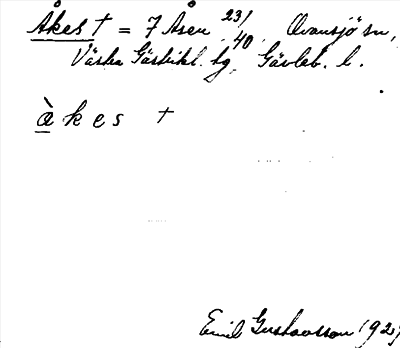 Åkes † = 7 Åsen 23/40, Ovansjö sn,
Västra Gästrikl. tg, Gävleb. l.
àkes †
Emil Gustavsson 192